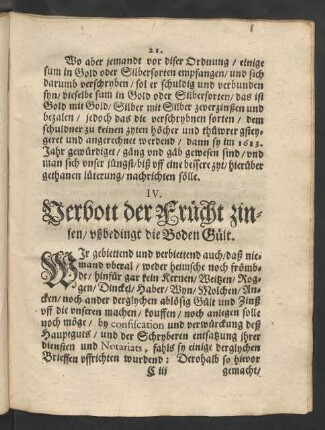 21.
Wo aber jemandt vor diser Ordnung / einige
sum in Gold oder Silbersorten empfangen / und sich
darumb verschryben / sol er schuldig und verbunden
syn / dieselbe sum in Gold oder Silbersorten / das ist
Gold mit Gold / Silber mit Silber zeverzinßen und
bezalen / jedoch das die verschrybnen sorten / dem
schuldner zu keinen zyten höcher und thüwrer gstey-
geret und angerechnet werdend / dann sy im 1613.
Jahr gewürdiget / gäng und gäb gewesen sind / und
man sich unser jüngst / biß uff eine bessere zyt / hierüber
gethanen lüterung / nachrichten sölle.
IV.
Verbott der Frücht zin-
sen / ußbedingt die Boden Gült.
WIr gebiettend und verbiettend auch / daß nie-
mand überal / weder heimsche noch frömb-
de / hinfür gar kein Kernen / Weitzen / Rog-
gen / Dinckel / Haber / Wyn / Molchen / An-
cken / noch ander derglychen ablösig Gült und Zinß
uff die unseren machen / kouffen / noch anlegen solle
noch möge / by confiscation und verwürckung deß
Hauptguts / und der Schryberen entsatzung jhrer
diensten und Notariats, fahls sy einige derglychen
Brieffen uffrichten wurdend: Derohalb so hievor
C iij gemacht /